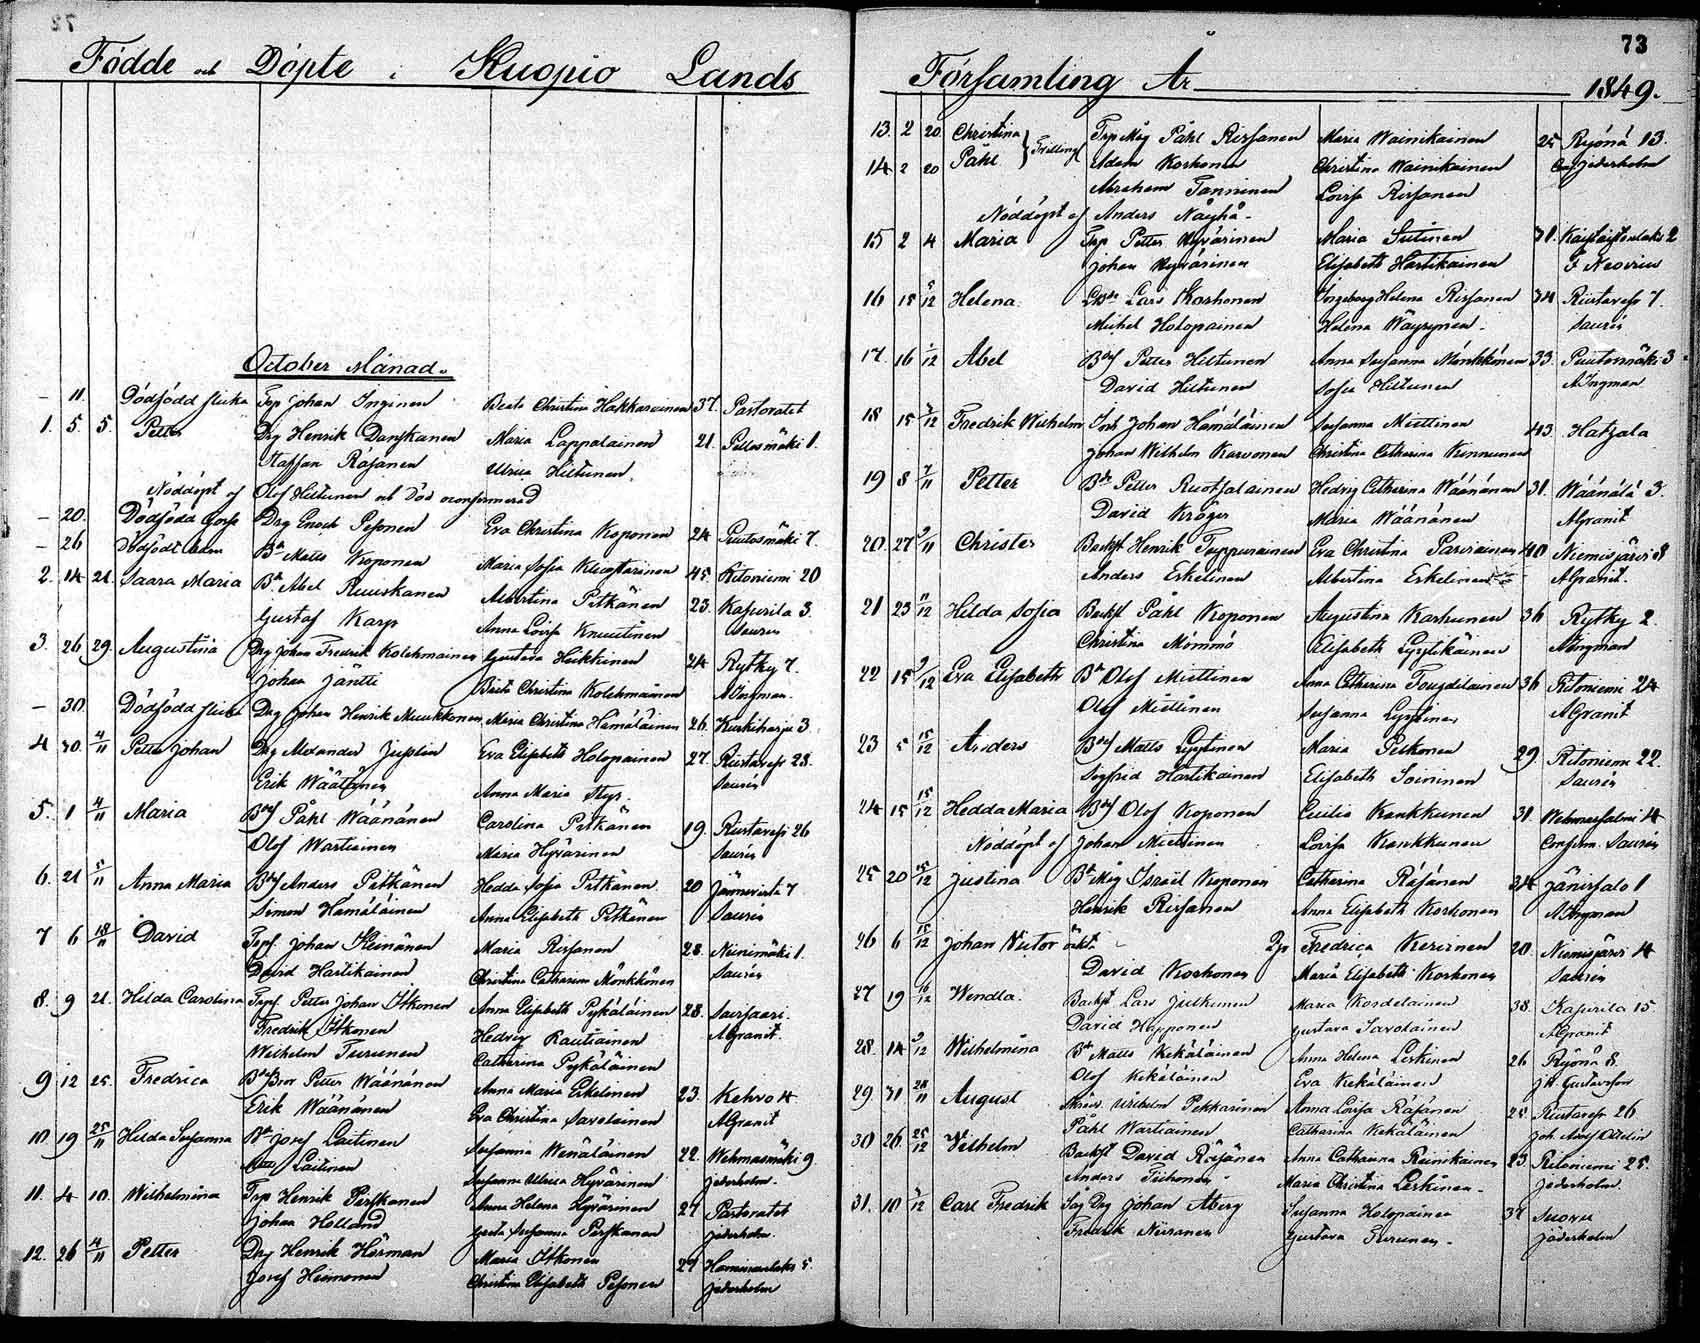 Födde och Döpte i Kuopio Lands
October Månad.
— 11. Dödfödd flicka Trp Johan Inginen Beata Christina Hakkarainen 37. Pastoratet
1. 5. 5. Petter Drg Henrik Danskanen Maria Lappalainen 21. Pellosmäki 1.
Staffan Räsänen Ulrica Hiltunen
Nöddöpt af Olof Hiltunen och Död oconfirmerad
— 20. Dödfödd gosse Drg Enoch Pesonen Eva Christina Koponen 24 Puutosmäki 7.
— 26 Dödfödt barn Bd Matts Koponen Maria Sofia 45. Ritoniemi 20
2. 14 21. Saara Maria Bd Abel Ruuskanen Albertina Pitkänen 23. Kasurila 3.
Gustaf Karp Anna Lovisa Knuutinen Saurén
3. 26 29 Augustina Drg Johan Fredrik Kolehmainen Gustava Heikkinen 24 Rytky 7.
Johan Jäntti Beata Christina Kolehmainen A Ingman.
— 30. Dödfödd flicka Drg Johan Henrik Muukkonen Maria Christina Hämäläinen 26. Kurkiharju 3.
4 30. 4/11 Petter Johan Drg Alexander Juslin Eva Elisabeth Holopainen 27. Riistavesi 23.
Erik Väätäinen Anna Maria Styr. Saurén
5. 1 4/11 Maria Bds Påhl Wäänänen Carolina Pitkänen 19. Riistavesi 26
Olof Wartiainen Maria Hyvärinen Saurén
6. 21 5/11 Anna Maria Bds Anders Pitkänen Hedda Sofia Pitkänen 20 Jännevirta 7
Simon Hämäläinen Anna Elisabeth Pitkänen Saurén
7 6 18/11 David Trps. Johan Keinänen Maria Rissanen 28. Niinimäki 1.
David Hartikainen Christina Catharina Mönkkönen Saurén
8. 9 21. Hilda Carolina Trps. Petter Johan Itkonen Anna Elisabeth Pykäläinen 28. Vaissaari.
Fredrik Itkonen Hedvig Rautiainen AGranit.
Wilhelm Turunen Catharina Pykäläinen
9 12 25. Fredrica Bds Bror Petter Wäänänen Anna Maria Eskelinen 23. Kehvo 4
Erik Wäänänen Eva Christina Savolainen AGranit
10. 19 25/11 Hilda Susanna Bd Josef Laitinen Susanna Wenäläinen 22. Wehmasmäki 9
Laitinen Susanna Ulrica Hyvärinen Jäderholm.
11. 4 10. Wilhelmina Trp Henrik Parskanen Anna Helena Hyvärinen 27 Pastoratet
Johan Holland Greta Susanna Parskanen Jäderholm.
12. 26 4/11 Petter Drg Henrik Hörman Maria Itkonen 27 Haminanlaks 5.
Josef Heimonen Christina Elisabeth Pesonen Jäderholm
73
Församling År 1849.
13. 2 20. Christina } Tvilling Trp Måg Påhl Rissanen Maria Wainikainen 25 Ryönä 13.
14 2 20 Påhl Adam Korhonen Christina Wainikainen Jäderholm
Abraham Tanninen Lovisa Rissanen
Nöddöpt af Anders Näyhä.
15 2 4 Maria Trp Petter Hyvärinen Maria Sutinen 31. 2
Johan Hyvärinen Elisabeth Hartikainen F Neovius
16 15 5/12 Helena Lars Korhonen Ingeborg Helena Rissanen 34 Riistavesi 7.
Michel Holopainen Helena Wäyrynen. Saurén
17. 16 1/12 Abel Bds Petter Hiltunen Anna Susanna Mönkkönen 33. Puutosmäki 3
David Hiltunen Sofia Hiltunen A Ingman
18 15 7/12 Fredrik Wilhelm Inh Johan Hämäläinen Susanna Miettinen 43 Hatsala
Johan Wilhelm Karvonen Christina Catharina Kinnunen
19 8 7/11 Petter Bd Petter Ruotsalainen Hedvig Catharina Wäänänen 31. Wäänälä 3.
David Kröger Maria Wäänänen AGranit
20. 27 9/11 Christer Backst Henrik Tuppurainen Eva Christina Parviainen 40 Niemisjärvi 8
Anders Eskelinen Albertina Eskelinen AGranit.
21 23 11/12 Hilda Sofia Backst Påhl Koponen Augustina Karhunen 36 Rytky 2.
Christina Mömmö Elisabeth Lyytikäinen A Ingman
22 15 9/12 Eva Elisabeth Bd Olof Miettinen Anna Catharina 36 Ritoniemi 24
Olof Miettinen Susanna Lyytinen AGranit
23 5 15/12 Anders Bds Matts Lyytinen Maria Pitkonen 29. Ritoniemi 22.
Sigfrid Hartikainen Elisabeth Soininen Saurén
24 15 15/12 Hedda Maria Bds Olof Koponen Cecilia Kankkunen 31. Wehmasalmi 4
Nöddöpt af Johan Miettinen Lovisa Kankkunen Confirm. Saurén
25 20 15/12 Justina Bd Måg Israël Koponen Catharina Räsänen 34 Jänissalo 1
Henrik Rissanen Anna Elisabeth Korhonen A Ingman
26 6 15/12 Johan Victor oäkt. Fredrica Kerinen 20. Niemisjärvi 4
David Korhonen Maria Elisabeth Korhonen Saurén
27 19 16/12 Wendla. Backst Lars Julkunen Maria Kosdelainen 38. Kasurila 15.
David Happonen Gustava Savolainen AGranit
28. 14 2/12 Wilhelmina Bd Matts Kekäläinen Anna Helena Leskinen 26 Ryönä 8.
Olof Kekäläinen Eva Kekäläinen Gustafson
29 31 28/11 August Wilhelm Pekkarinen Anna Lovisa Räsänen 25 Riistavesi 26
Påhl Wartiainen Catharina Kekäläinen Joh. Adolf
30 26 25/12 Wilhelm Backst David Räsänen Anna Catharina Reinikainen 23. Ritoniemi 25.
Anders Tiihonen. Maria Christina Leskinen. Jäderholm.
31. 10 1/12 Carl Fredrik Drg Johan Åberg Susanna Holopainen 37 Suovu
Fredrik Niiranen Gustava Turunen. Jäderholm